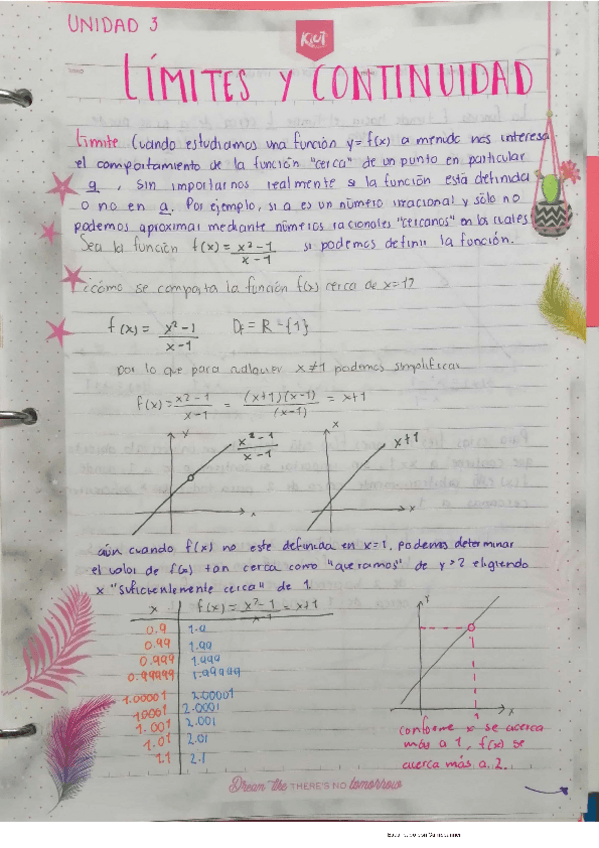 UNIDAD 3
KIUT
LÍMITES Y CONTINUIDAD
Limite Cuando estudiamos una función y=f(x) a menudo nos interesa
el comportamiento de la función "cerca" de un punto en particular
a, sin importarnos realmente si la función está definida
o no en a. Por ejemplo, si a es un número irracional y sólo no
podemos aproximar mediante números racionales "cercanos" en los cuales
Sea la función f(x) = x²-1 / x-1 si podemos definir la función.
¿cómo se comporta la función f(x) cerca de x=1?
f(x) = x²-1 / x-1 Df = R - {1}
por lo que para cualquier x≠1 podemos simplificar
f(x) = x²-1 / x-1 = (x+1)(x-1) / (x-1) = x+1
Y x²-1 / x-1 x
x x+1 x
aún cuando f(x) no este definida en x=1, podemos determinar
el valor de f(x) tan cerca como "queramos" de y>2 eligiendo
x "suficientemente cerca" de 1.
x f(x) = x²-1 / x-1 = x+1
0.9 1.9
0.99 1.99
0.999 1.999
0.99999 1.99999
1.00001 2.00001
1.0001 2.0001
1.001 2.001
1.01 2.01
1.1 2.1
Y
x
1
conforme x se acerca
más a 1, f(x) se
acerca más a 2.
Dream like THERE'S NO tomorrow